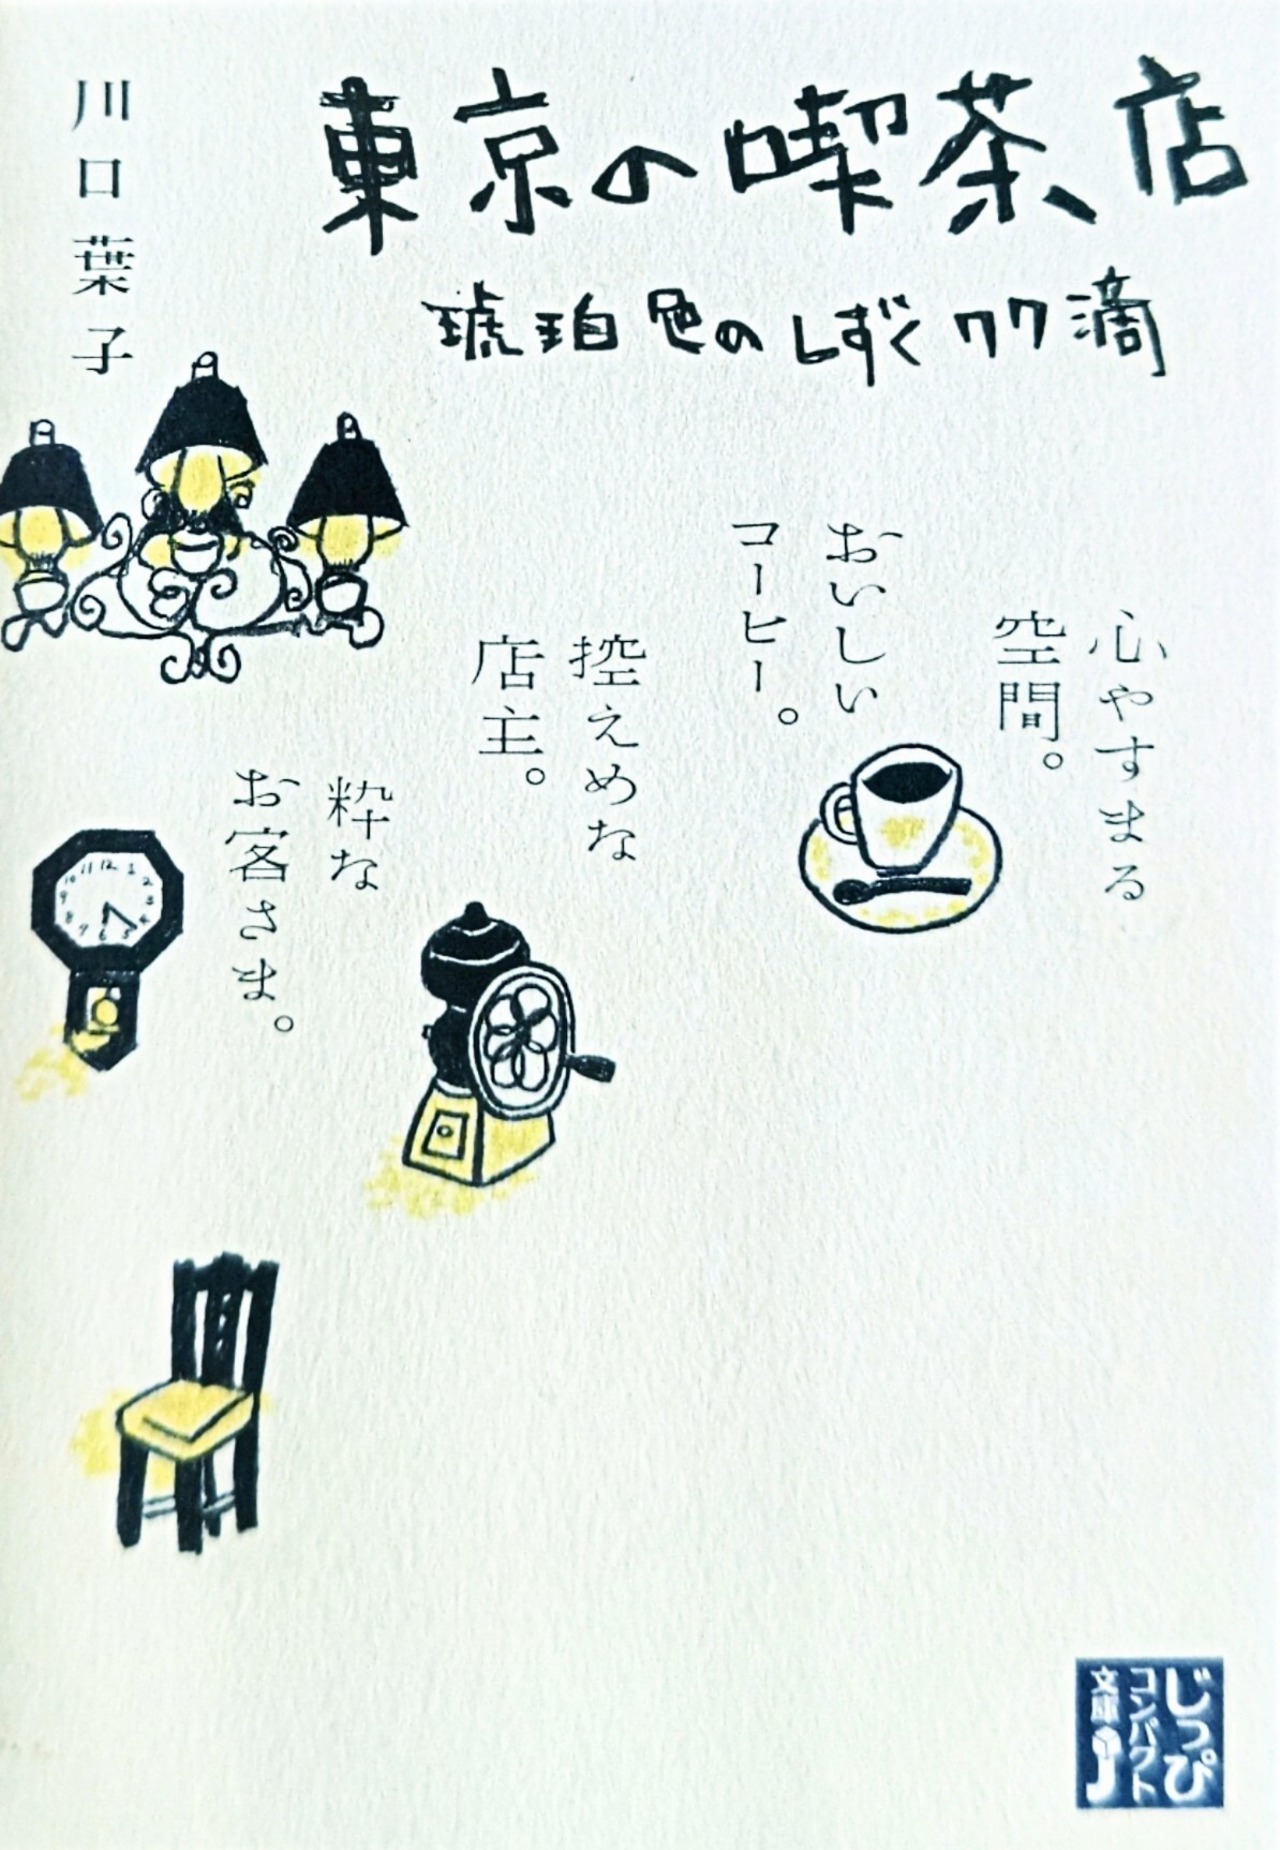 東京の喫茶店
琥珀色のしずく77滴
川口葉子
心やすまる
空間。
おいしい
コーヒー。
控えめな
店主。
粋な
お客さま。
12
1
2
3
4
5
6
7
8
9
10
11
じっぴ
コンパクト
文庫